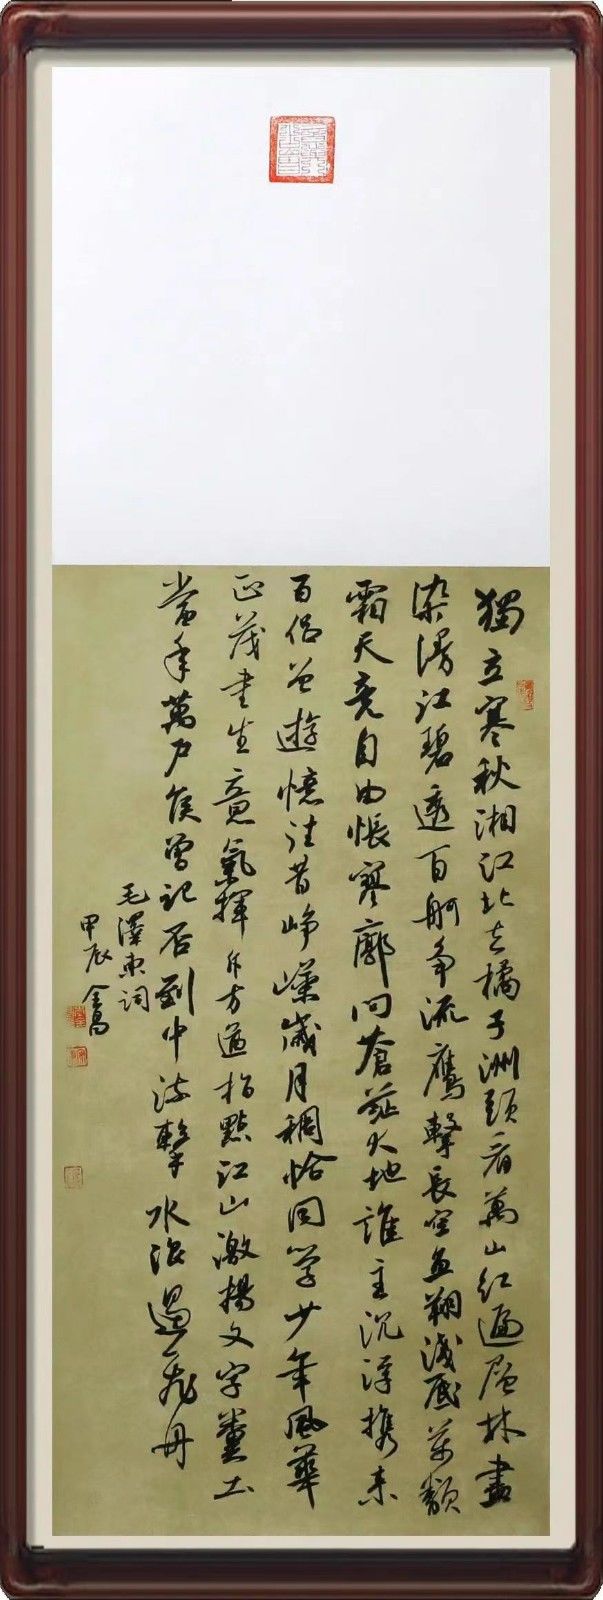 獨立寒秋湘江北去橘子洲頭看萬山红遍層林盡
染漫江碧透百舸争流鷹擊長空魚翔淺底萬類
霜天竞自由悵寥廓问蒼茫大地誰主沉浮携来
百侣曾遊憶往昔崢嶸歲月稠恰同学少年風華
正茂書生意氣揮斥方遒指點江山激揚文字糞土
當年萬户侯曾記否到中流擊水浪遏飛舟
毛澤東詞
甲辰